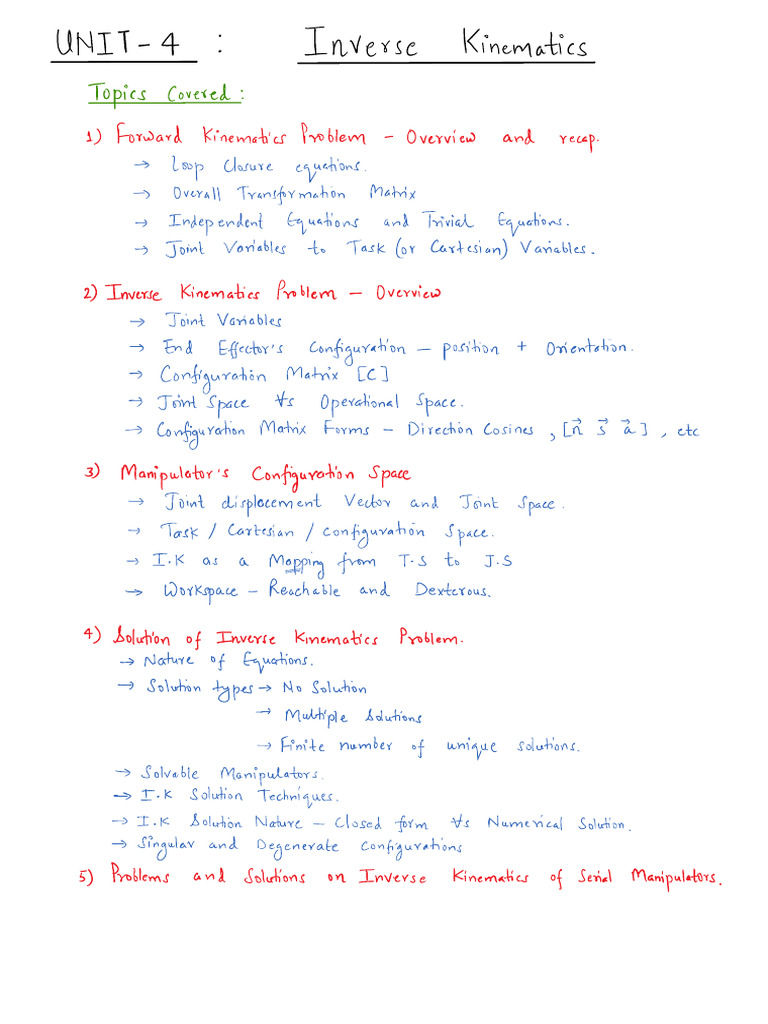 UNIT-4 : Inverse Kinematics
Topics Covered:
1) Forward Kinematics Problem - Overview and recap.
→ Loop Closure equations.
→ Overall Transformation Matrix
→ Independent Equations and Trivial Equations.
→ Joint Variables to Task (or Cartesian) Variables.
2) Inverse Kinematics Problem - Overview
→ Joint Variables
→ End Effector's Configuration - position + Orientation.
→ Configuration Matrix [C]
→ Joint Space Vs Operational Space.
→ Configuration Matrix Forms - Direction Cosines, [n⃗ s⃗ a⃗], etc
3) Manipulator's Configuration Space
→ Joint displacement Vector and Joint Space.
→ Task / Cartesian / Configuration Space.
→ I.K as a Mapping from T.S to J.S
→ Workspace - Reachable and Dexterous.
4) Solution of Inverse Kinematics Problem.
→ Nature of Equations.
→ Solution types → No Solution
→ Multiple Solutions
→ Finite number of unique solutions.
→ Solvable Manipulators.
→ I.K Solution Techniques.
→ I.K Solution Nature - Closed form Vs Numerical Solution.
→ Singular and Degenerate Configurations
5) Problems and Solutions on Inverse Kinematics of Serial Manipulators.